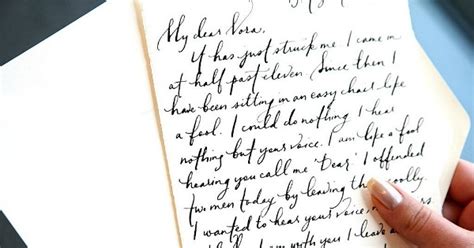 My dear Nora,
It has just struck me. I came in
at half past eleven. Since then I
have been sitting in an easy chair like
a fool. I could do nothing. I hear
nothing but your voice. I am like a fool
hearing you call me 'Dear.' I offended
two men today by leaving
I wanted to hear your voice,
with you I leave